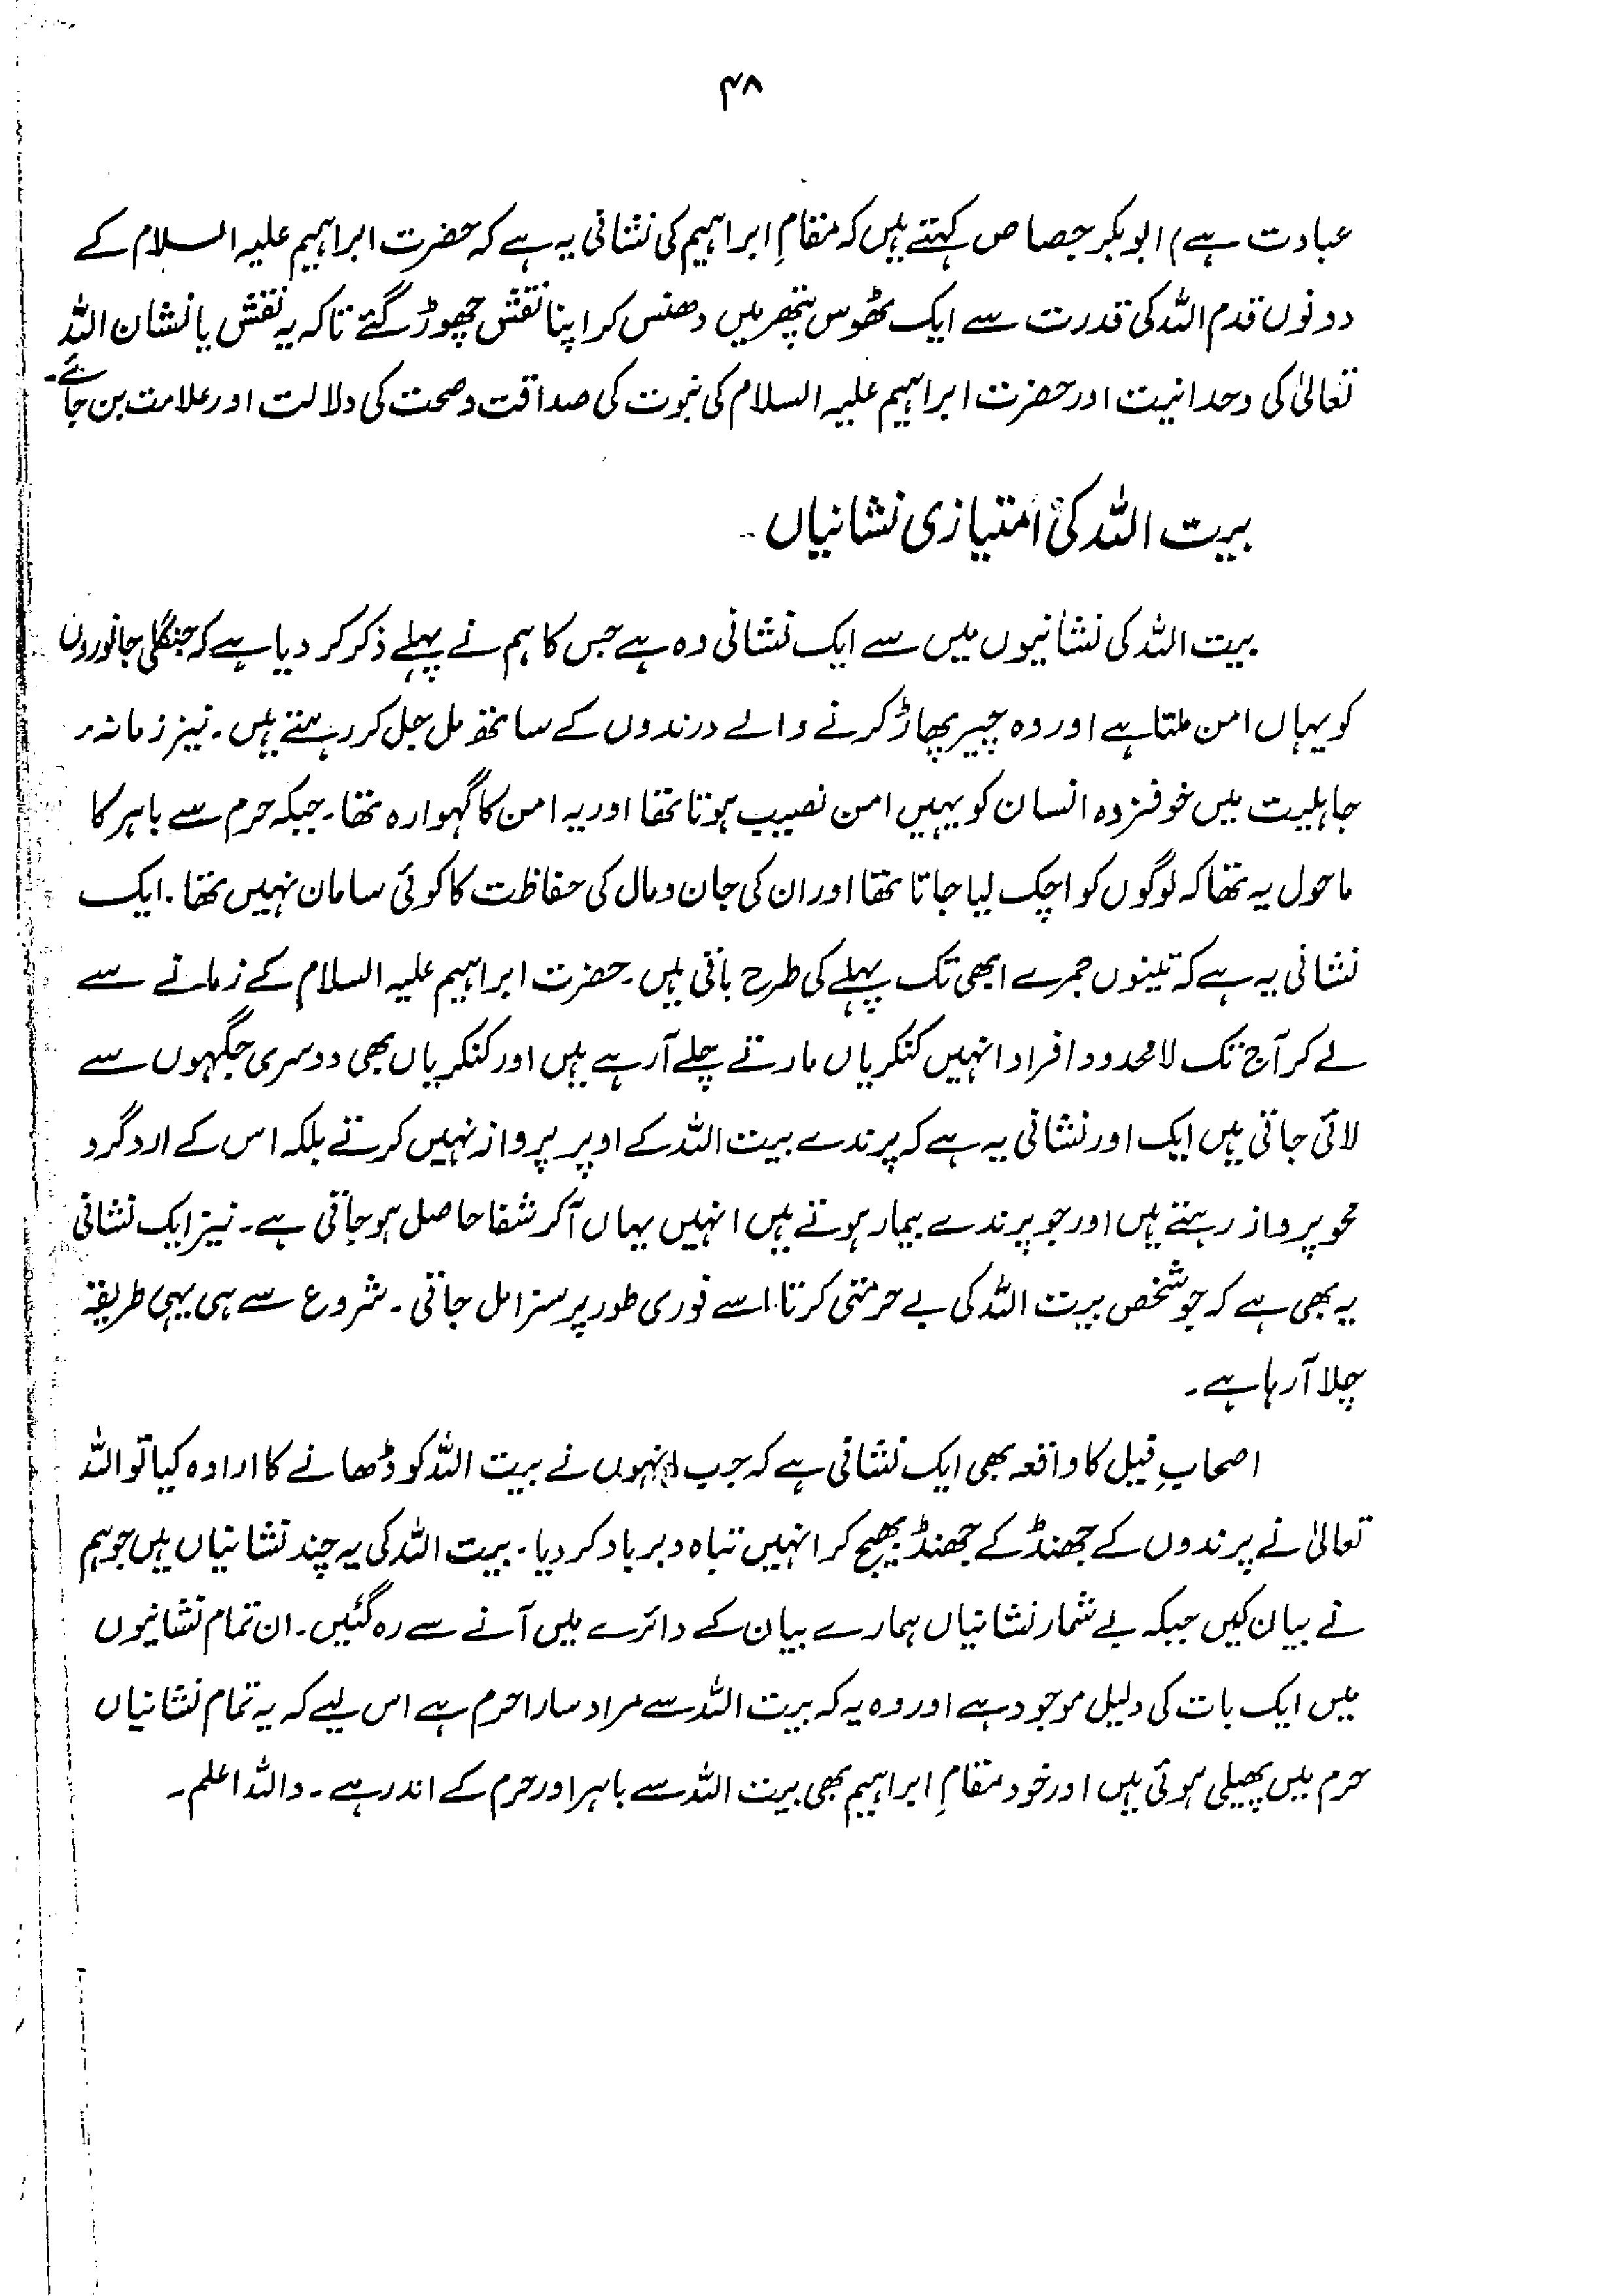 ۴۸
عبادت ہے) ابوبکر جصاص کہتے ہیں کہ مقامِ ابراہیم کی نشانی یہ ہے کہ حضرت ابراہیم علیہ السلام کے
دونوں قدم اللہ کی قدرت سے ایک ٹھوس پتھر میں دھنس کر اپنا نقش چھوڑ گئے تاکہ یہ نقش یا نشان اللہ
تعالیٰ کی وحدانیت اور حضرت ابراہیم علیہ السلام کی نبوت کی صداقت و صحت کی دلالت اور علامت بن جائے۔
بیت اللہ کی امتیازی نشانیاں۔
بیت اللہ کی نشانیوں میں سے ایک نشانی وہ ہے جس کا ہم نے پہلے ذکر کر دیا ہے کہ جنگلی جانوروں
کو یہاں امن ملتا ہے اور وہ چیر پھاڑ کرنے والے درندوں کے ساتھ مل جل کر رہتے ہیں۔ نیز زمانہ
جاہلیت میں خوفزدہ انسان کو یہیں امن نصیب ہوتا تھا اور یہ امن کا گہوارہ تھا۔ جبکہ حرم سے باہر کا
ماحول یہ تھا کہ لوگوں کو اچک لیا جاتا تھا اور ان کی جان و مال کی حفاظت کا کوئی سامان نہیں تھا۔ ایک
نشانی یہ ہے کہ تینوں جمرے ابھی تک پہلے کی طرح باقی ہیں۔ حضرت ابراہیم علیہ السلام کے زمانے سے
لے کر آج تک لامحدود افراد انہیں کنکریاں مارتے چلے آرہے ہیں اور کنکریاں بھی دوسری جگہوں سے
لائی جاتی ہیں ایک اور نشانی یہ ہے کہ پرندے بیت اللہ کے اوپر پرواز نہیں کرتے بلکہ اس کے ارد گرد
محو پرواز رہتے ہیں اور جو پرندے بیمار ہوتے ہیں انہیں یہاں آکر شفا حاصل ہوجاتی ہے۔ نیز ایک نشانی
یہ بھی ہے کہ جو شخص بیت اللہ کی بے حرمتی کرتا اسے فوری طور پر سزا مل جاتی۔ شروع سے ہی یہی طریقہ
چلا آرہا ہے۔
اصحابِ فیل کا واقعہ بھی ایک نشانی ہے کہ جب انہوں نے بیت اللہ کو ڈھانے کا ارادہ کیا تو اللہ
تعالیٰ نے پرندوں کے جھنڈ کے جھنڈ بھیج کر انہیں تباہ و برباد کر دیا۔ بیت اللہ کی یہ چند نشانیاں ہیں جو ہم
نے بیان کیں جبکہ بے شمار نشانیاں ہمارے بیان کے دائرے میں آنے سے رہ گئیں۔ ان تمام نشانیوں
میں ایک بات کی دلیل موجود ہے اور وہ یہ کہ بیت اللہ سے مراد سارا حرم ہے اس لیے کہ یہ تمام نشانیاں
حرم میں پھیلی ہوئی ہیں اور خود مقامِ ابراہیم بھی بیت اللہ سے باہر اور حرم کے اندر ہے۔ واللہ اعلم۔